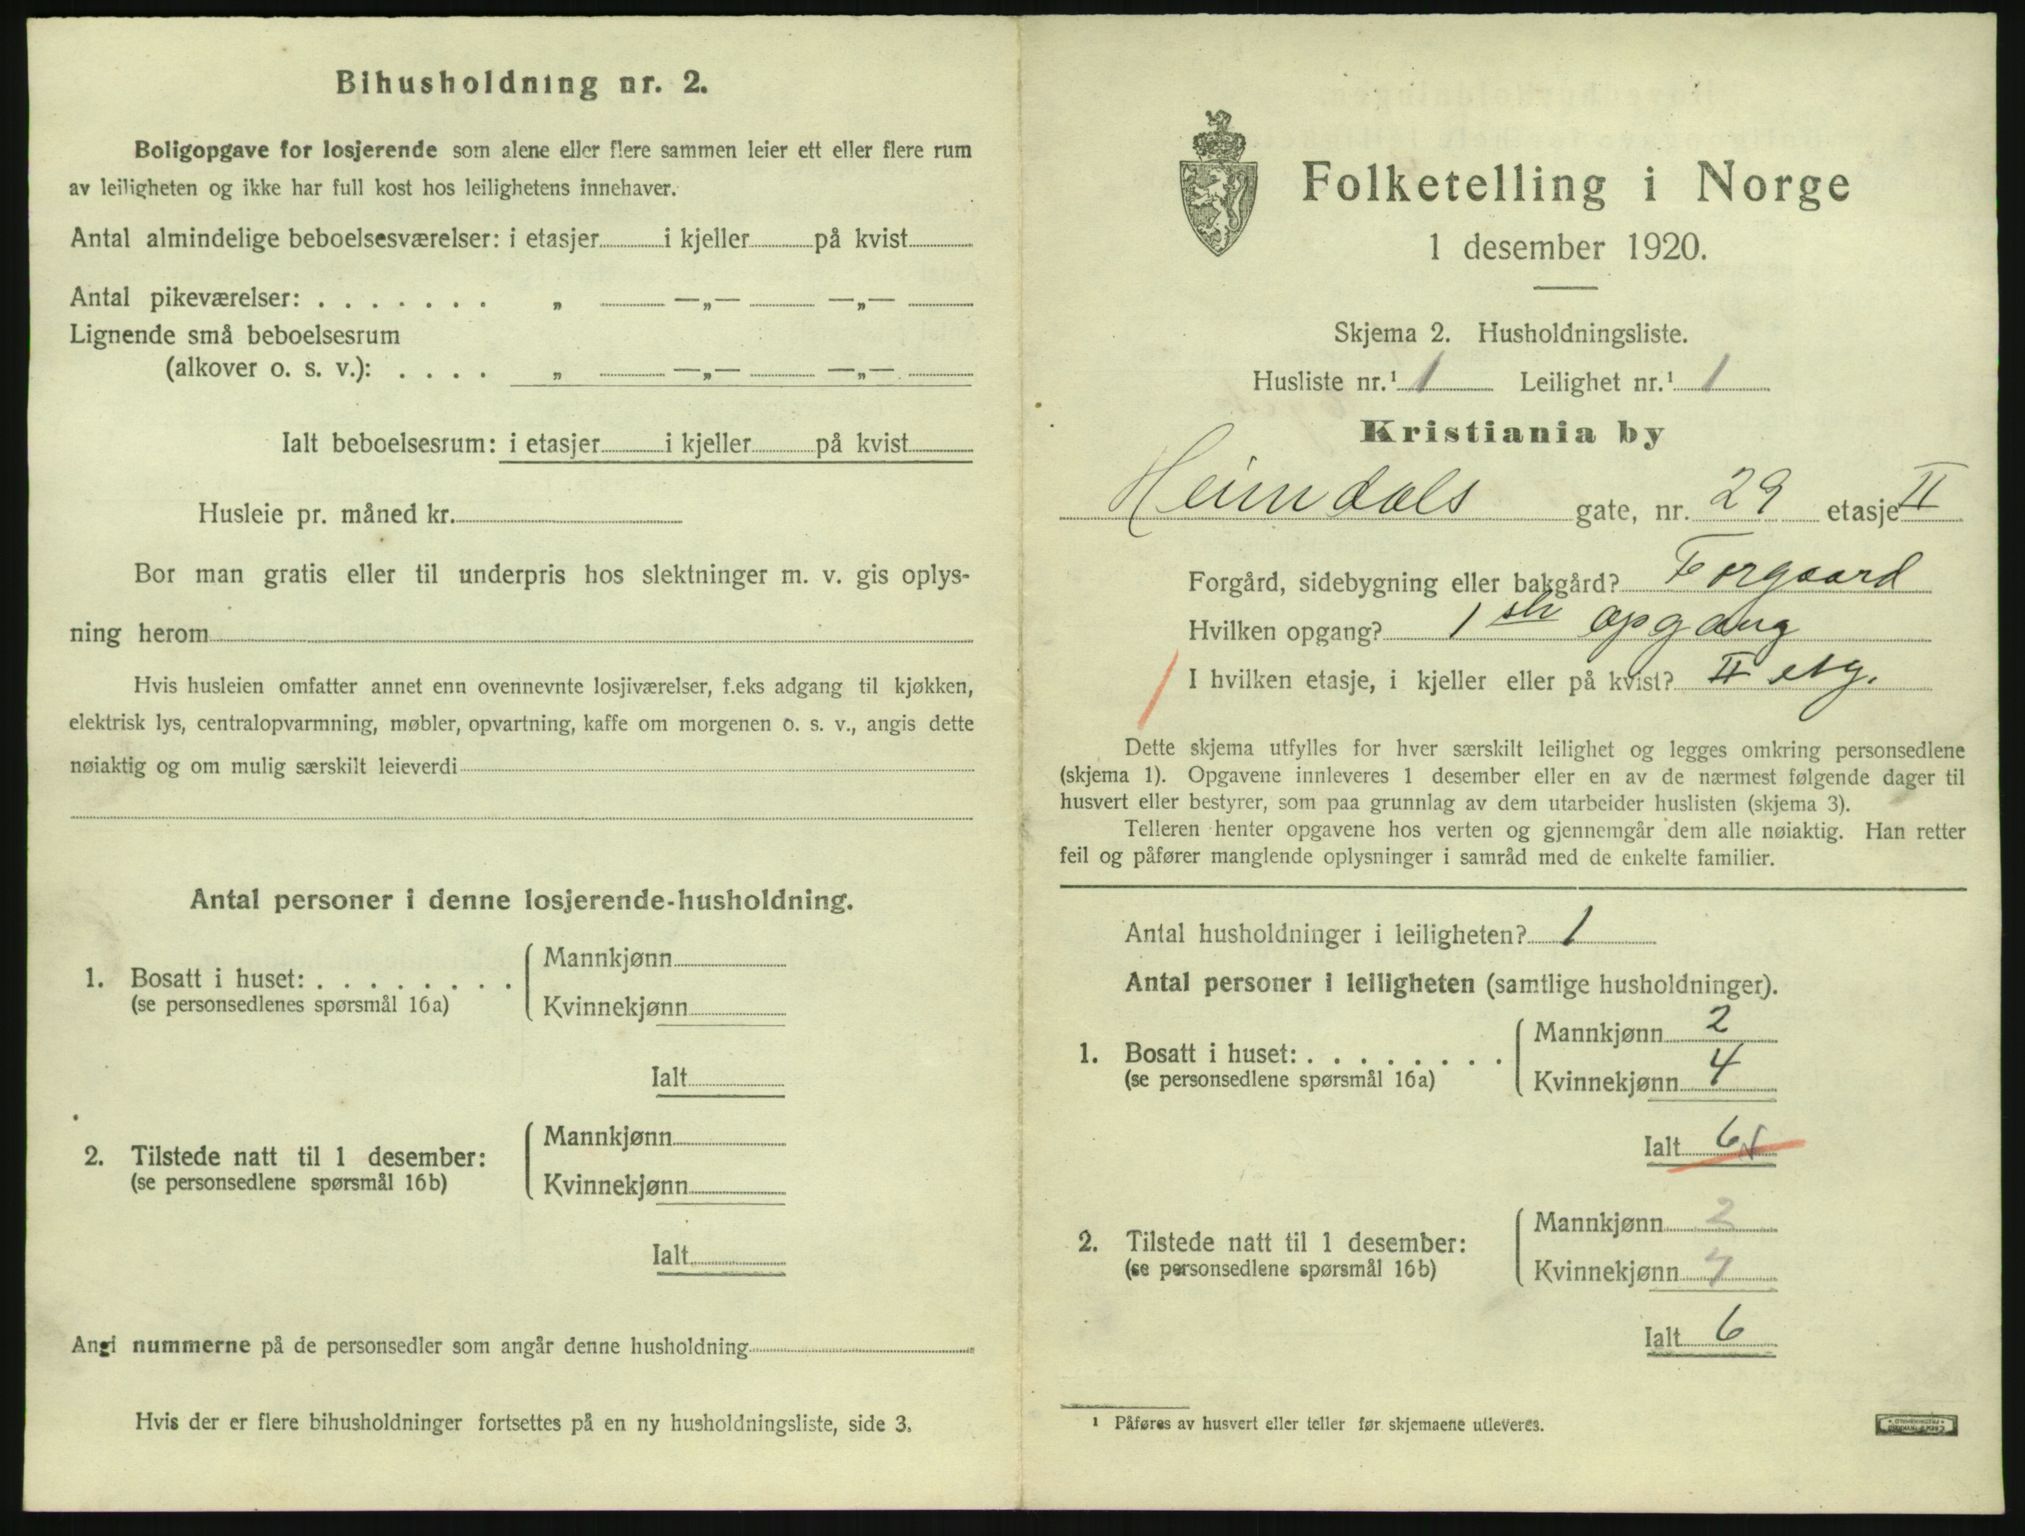 Bihusholdning nr. 2.
Boligopgave for losjerende som alene eller flere sammen leier ett eller flere rum
av leiligheten og ikke har full kost hos leilighetens innehaver.
Antal almindelige beboelsesværelser: i etasjer i kjeller på kvist
Antal pikeværelser: . . . . . . . „ —„— —„—
Lignende små beboelsesrum
(alkover o. s. v.): . . . . „ —„— —„—
Ialt beboelsesrum: i etasjer i kjeller på kvist
Husleie pr. måned kr.
Bor man gratis eller til underpris hos slektninger m. v. gis oplys-
ning herom
Hvis husleien omfatter annet enn ovennevnte losjiværelser, f.eks adgang til kjøkken,
elektrisk lys, centralopvarmning, møbler, opvartning, kaffe om morgenen o. s. v., angis dette
nøiaktig og om mulig særskilt leieverdi
Antal personer i denne losjerende-husholdning.
1. Bosatt i huset: . . . . . . . .
(se personsedlenes spørsmål 16a)
Mannkjønn
Kvinnekjønn
Ialt
2. Tilstede natt til 1 desember:
(se personsedlene spørsmål 16b)
Mannkjønn
Kvinnekjønn
Ialt
Angi nummerne på de personsedler som angår denne husholdning
Hvis der er flere bihusholdninger fortsettes på en ny husholdningsliste, side 3.
Folketelling i Norge
1 desember 1920.
Skjema 2. Husholdningsliste.
Husliste nr.¹ 1 Leilighet nr.¹ 1
Kristiania by
Heimdals gate, nr. 29 etasje II
Forgård, sidebygning eller bakgård? Forgaard
Hvilken opgang? 1ste opgang
I hvilken etasje, i kjeller eller på kvist? II etg.
Dette skjema utfylles for hver særskilt leilighet og legges omkring personsedlene
(skjema 1). Opgavene innleveres 1 desember eller en av de nærmest følgende dager til
husvert eller bestyrer, som paa grunnlag av dem utarbeider huslisten (skjema 3).
Telleren henter opgavene hos verten og gjennemgår dem alle nøiaktig. Han retter
feil og påfører manglende oplysninger i samråd med de enkelte familier.
Antal husholdninger i leiligheten? 1
Antal personer i leiligheten (samtlige husholdninger).
1. Bosatt i huset: . . . . . . . .
(se personsedlene spørsmål 16a)
Mannkjønn 2
Kvinnekjønn 4
Ialt 6
2. Tilstede natt til 1 desember:
(se personsedlene spørsmål 16b)
Mannkjønn 2
Kvinnekjønn 4
Ialt 6
¹ Påføres av husvert eller teller før skjemaene utleveres.